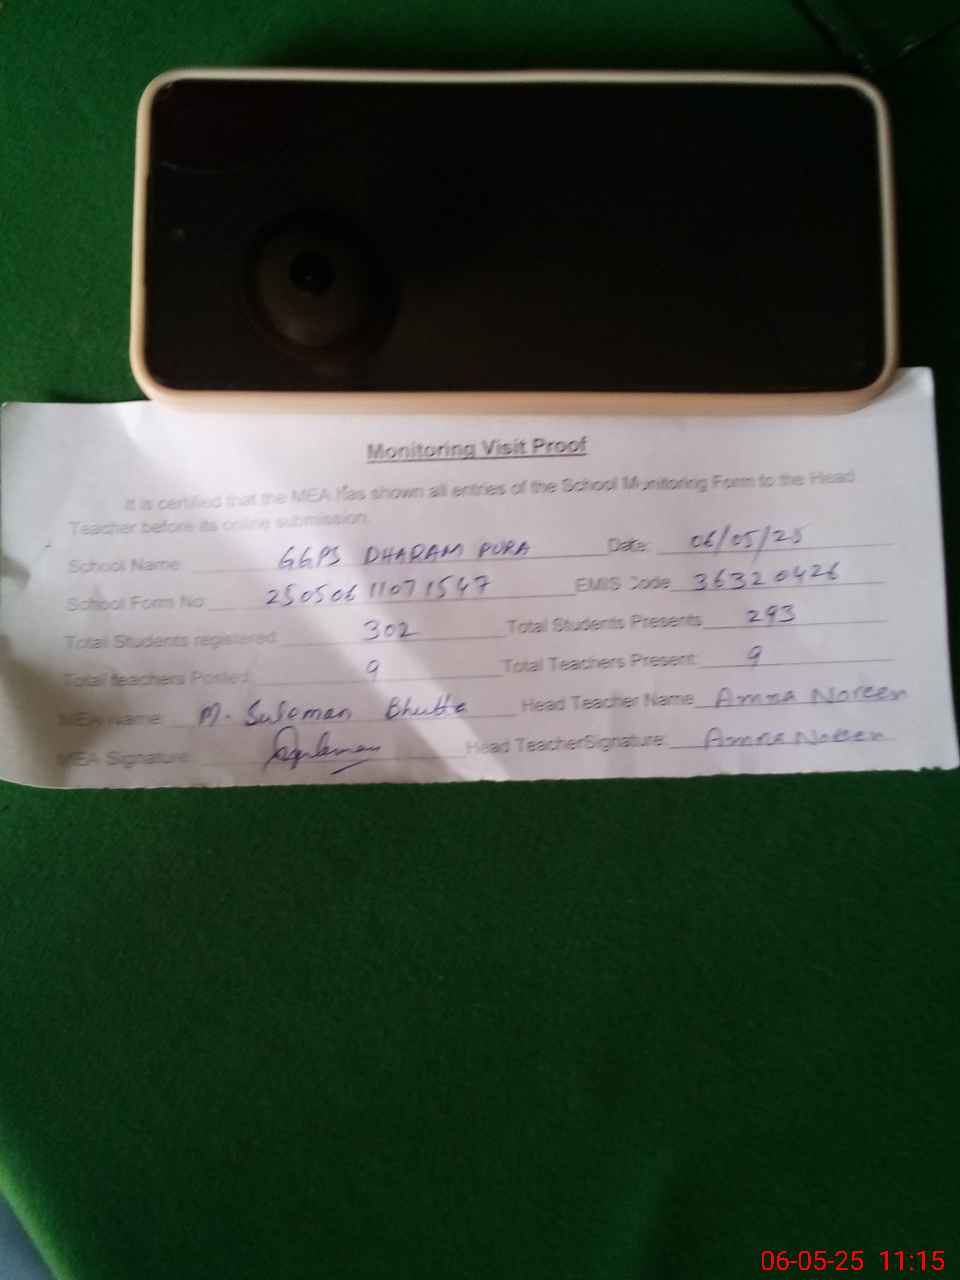 Monitoring Visit Proof
It is certified that the MEA has shown all entries of the School Monitoring Form to the Head
Teacher before its online submission.
School Name: GGPS DHARAM PURA Date: 06/05/25
School Form No: 25050611071547 EMIS Code 36320426
Total Students registered: 302 Total Students Presents 293
Total teachers Posted: 9 Total Teachers Present: 9
MEA Name: M. Suleman Bhutta Head Teacher Name Amna Noreen
MEA Signature: Suleman Head TeacherSignature: Amna Noreen
06-05-25 11:15